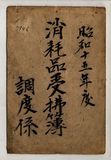 昭和十五年度
消耗品受拂簿
調度係